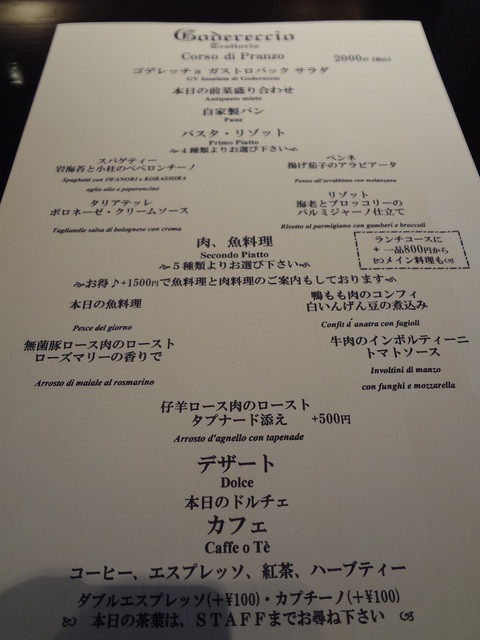 Godereccio
Trattoria
Corso di Pranzo 2000円(税込)
ゴデレッチョ ガストロバック サラダ
GV Insalata di Godereccio
本日の前菜盛り合わせ
Antipasto misto
自家製パン
Pane
パスタ・リゾット
Primo Piatto
〜４種類よりお選び下さい〜
スパゲティー
岩海苔と小柱のペペロンチーノ
Spaghetti con IWANORI e KOBASHIRA
aglio olio e peperoncino
ペンネ
揚げ茄子のアラビアータ
Penne all'arrabbiata con melanzana
タリアテッレ
ボロネーゼ・クリームソース
Tagliatelle salsa di bolognese con crema
リゾット
海老とブロッコリーの
パルミジャーノ仕立て
Risotto al parmigiano con gamberi e broccoli
肉、魚料理
Secondo Piatto
〜５種類よりお選び下さい〜
ランチコースに
+ 一品800円から
メイン料理も
〜お得♪+1500円で魚料理と肉料理のご案内もしております〜
本日の魚料理
Pesce del giorno
鴨もも肉のコンフィ
白いんげん豆の煮込み
Confit d'anatra con fagioli
無菌豚ロース肉のロースト
ローズマリーの香りで
Arrosto di maiale al rosmarino
牛肉のインボルティーニ
トマトソース
Involtini di manzo
con funghi e mozzarella
仔羊ロース肉のロースト
タプナード添え +500円
Arrosto d'agnello con tapenade
デザート
Dolce
本日のドルチェ
カフェ
Caffe o Tè
コーヒー、エスプレッソ、紅茶、ハーブティー
ダブルエスプレッソ(+¥100)・カプチーノ(+¥100)
本日の茶葉は、ＳＴＡＦＦまでお尋ね下さい